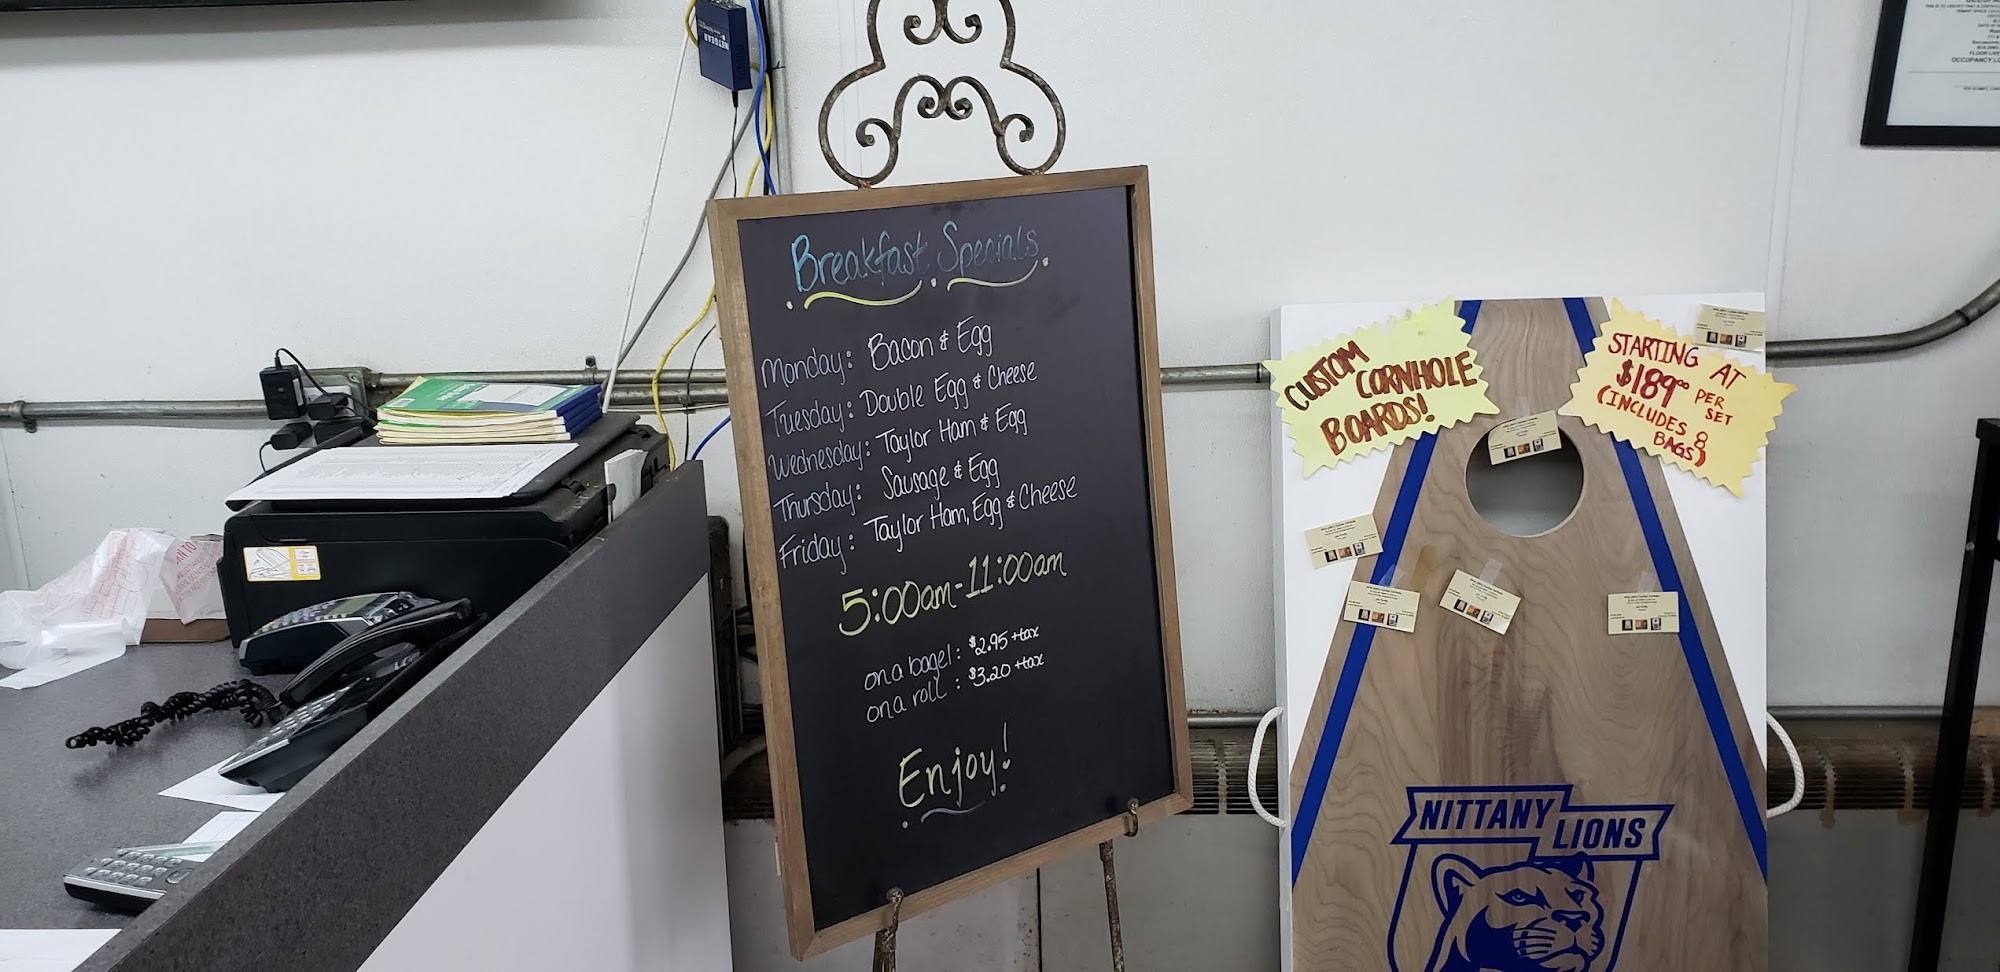 NETGEAR
Breakfast Specials
Monday: Bacon & Egg
Tuesday: Double Egg & Cheese
Wednesday: Taylor Ham & Egg
Thursday: Sausage & Egg
Friday: Taylor Ham, Egg & Cheese
5:00am - 11:00am
on a bagel: $2.95 +tax
on a roll: $3.20 +tax
Enjoy!
CUSTOM
CORNHOLE
BOARDS!
STARTING AT
$189.00 PER
SET
(INCLUDES 8
BAGS)
NITTANY
LIONS